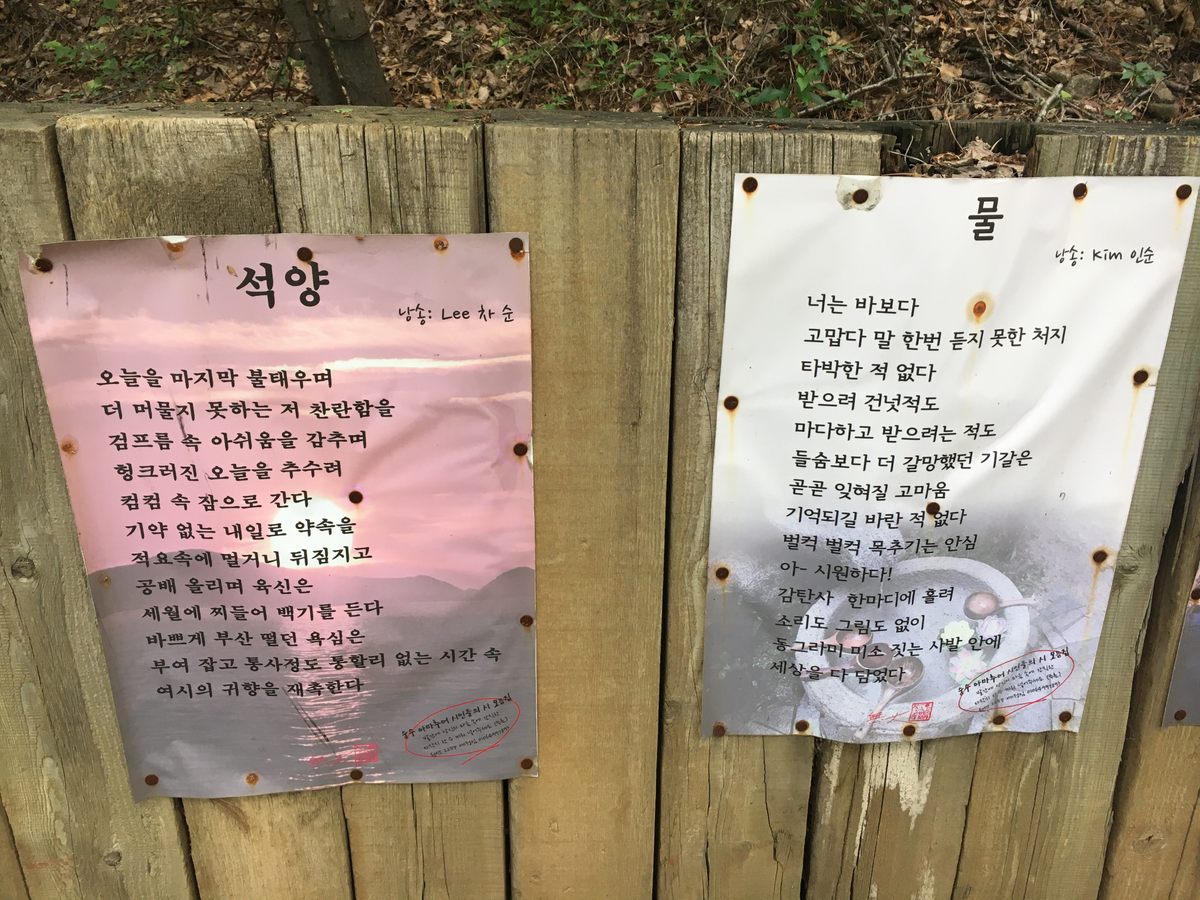 석양
낭송: Lee 차 순
오늘을 마지막 불태우며
더 머물지 못하는 저 찬란함을
검프름 속 아쉬움을 감추며
헝크러진 오늘을 추수려
컴컴 속 잠으로 간다
기약 없는 내일로 약속을
적요속에 멀거니 뒤짐지고
공배 올리며 육신은
세월에 찌들어 백기를 든다
바쁘게 부산 떨던 욕심은
부여 잡고 통사정도 통할리 없는 시간 속
여시의 귀향을 재촉한다
송우 아마추어 시인들의 시 모음집
물
낭송: Kim 인순
너는 바보다
고맙다 말 한번 듣지 못한 처지
타박한 적 없다
받으려 건넛적도
마다하고 받으려는 적도
들숨보다 더 갈망했던 기갈은
곧곧 잊혀질 고마움
기억되길 바란 적 없다
벌컥 벌컥 목추기는 안심
아- 시원하다!
감탄사 한마디에 홀려
소리도 그림도 없이
동그라미 미소 짓는 사발 안에
세상을 다 담았다
송우 아마추어 시인들의 시 모음집